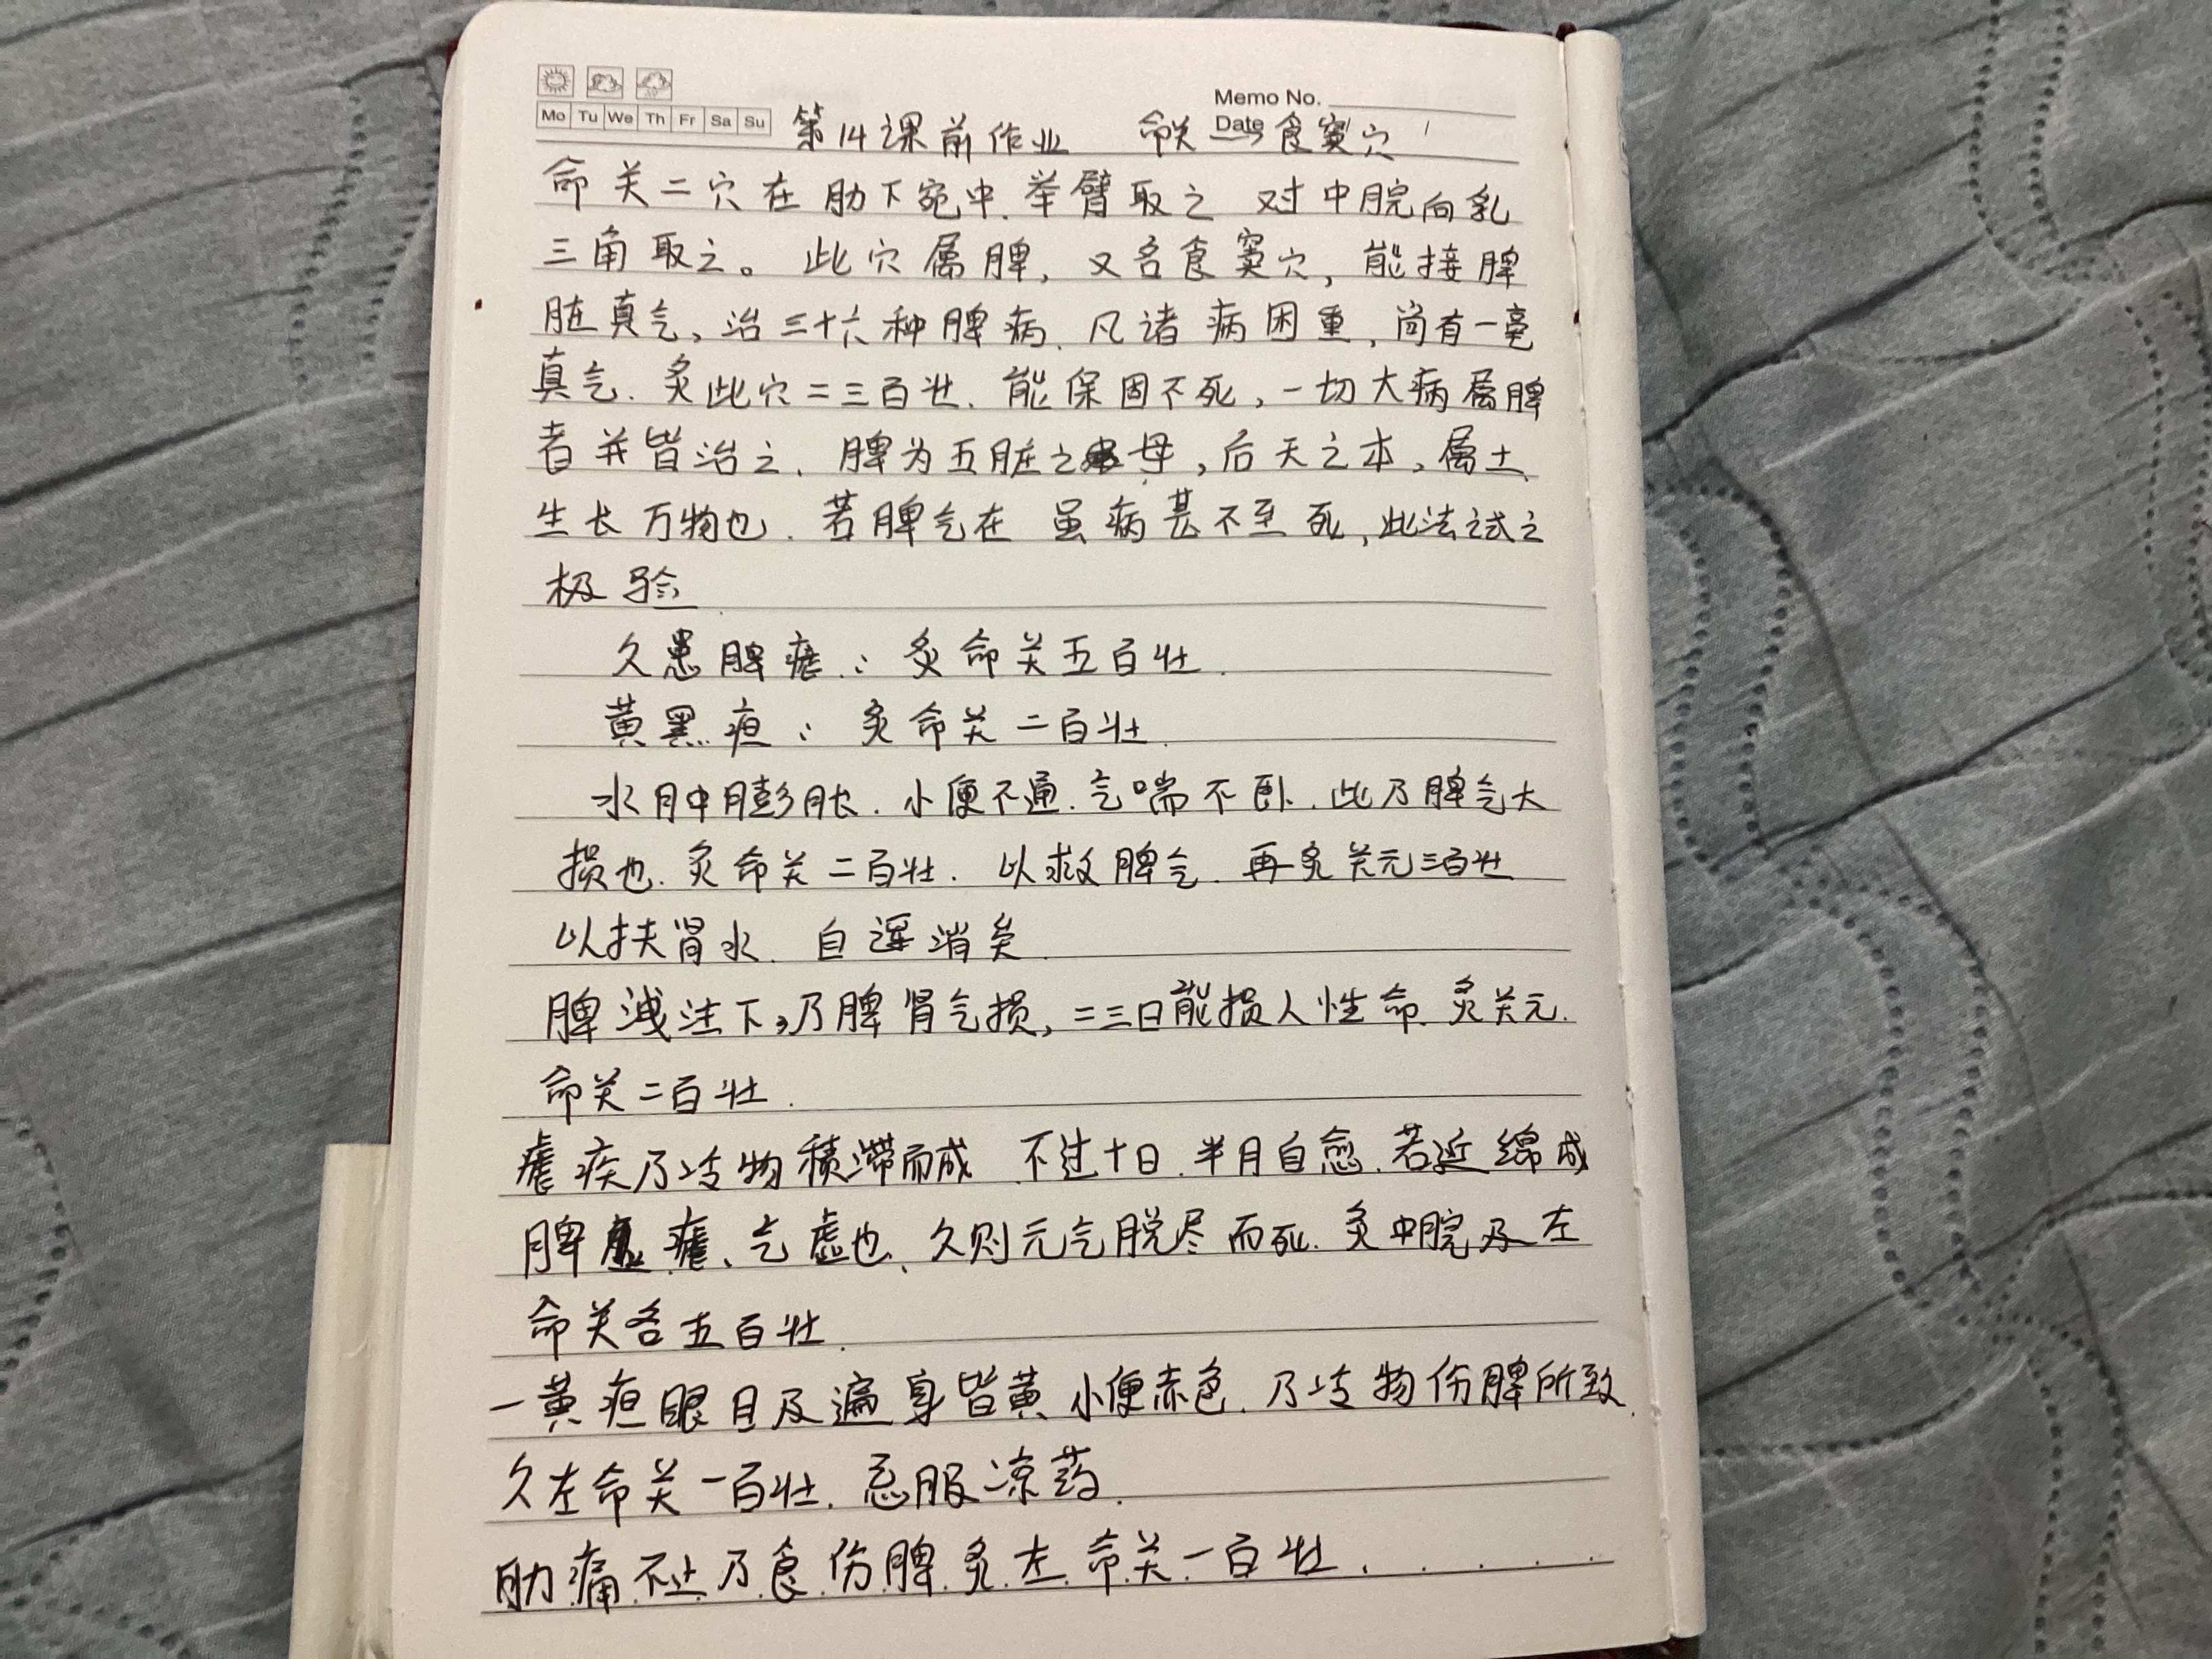 Memo No.
Mo Tu We Th Fr Sa Su
Date
第14课前作业 命关→食窦穴
命关二穴在肋下宛中.举臂取之 对中脘向乳
三角取之。此穴属脾,又名食窦穴,能接脾
脏真气,治三十六种脾病.凡诸病困重,尚有一毫
真气.灸此穴二三百壮.能保固不死,一切大病属脾
者并皆治之.脾为五脏之母,后天之本,属土
生长万物也.若脾气在 虽病甚不至死,此法试之
极验
久患脾疟:灸命关五百壮.
黄黑疸:灸命关二百壮.
水肿膨胀.小便不通.气喘不卧.此乃脾气大
损也.灸命关二百壮.以救脾气.再灸关元三百壮
以扶肾水.自运消矣.
脾泄注下,乃脾肾气损,二三日能损人性命.灸关元.
命关二百壮.
疟疾乃冷物积滞而成 不过十日.半月自愈.若延绵成
脾疟、气虚也、久则元气脱尽而死.灸中脘及左
命关各五百壮.
一黄疸眼目及遍身皆黄 小便赤色.乃冷物伤脾所致.
久左命关一百壮.忌服凉药.
肋痛不止乃食伤脾.灸左命关一百壮.